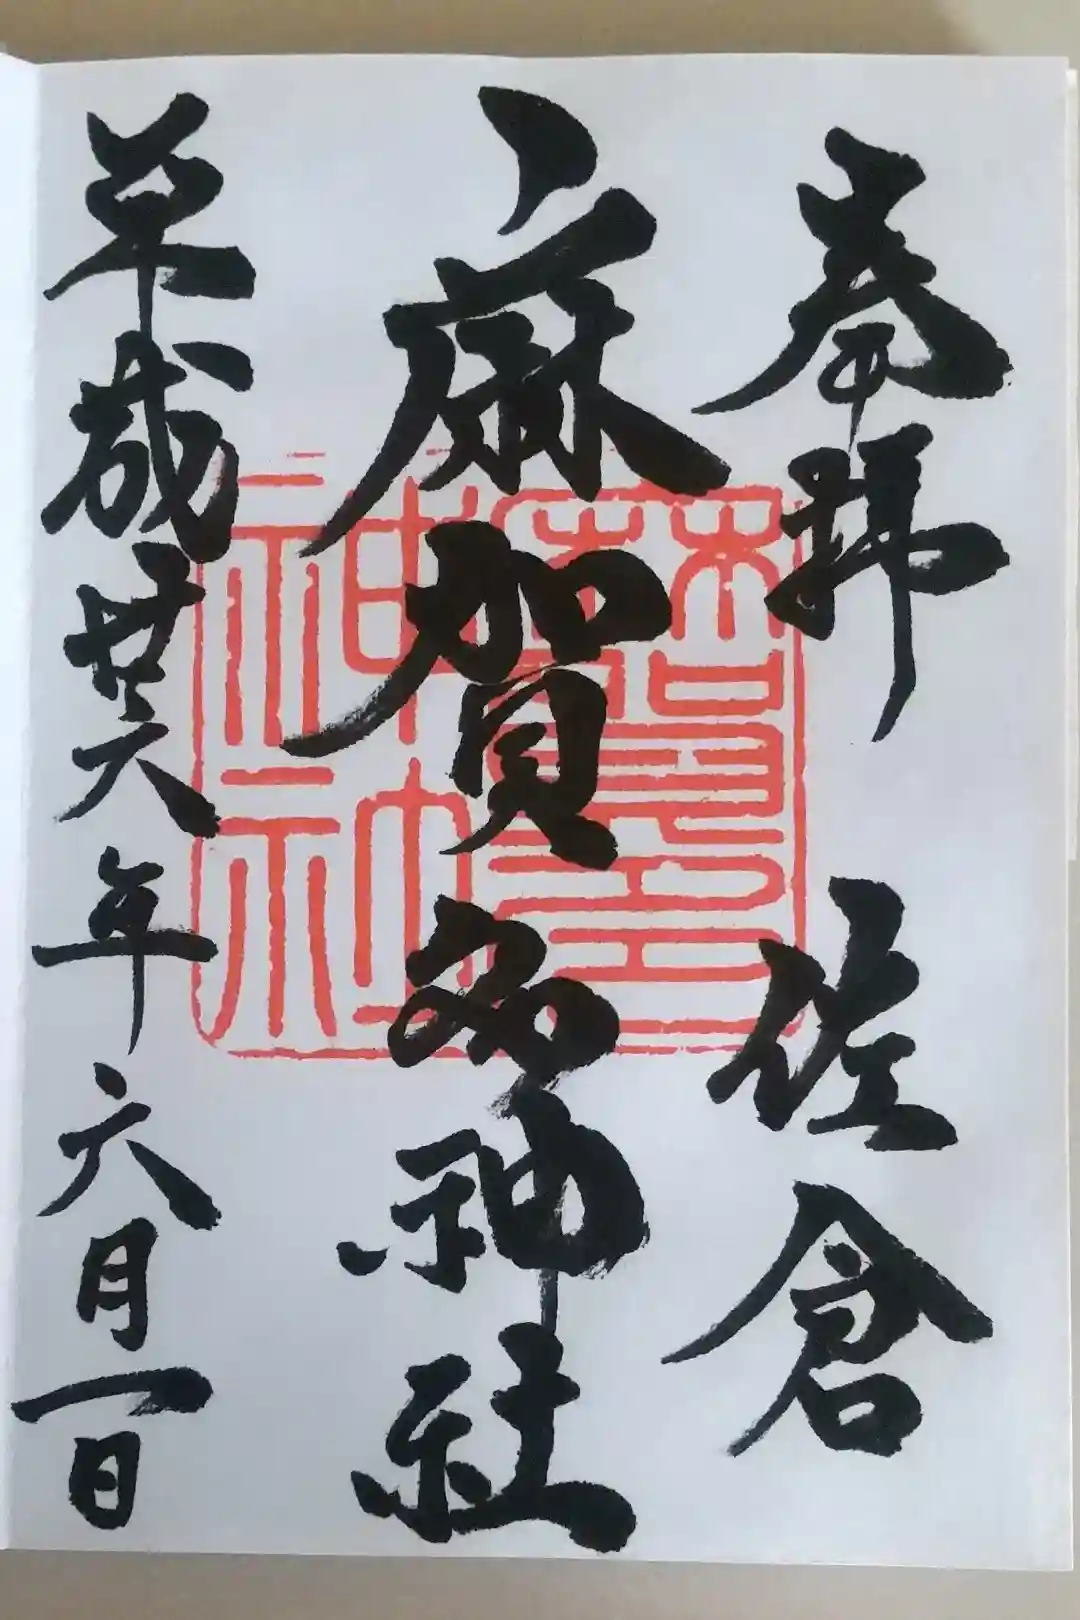 奉拝　佐倉
麻賀多神社
平成廿六年六月一日
神社